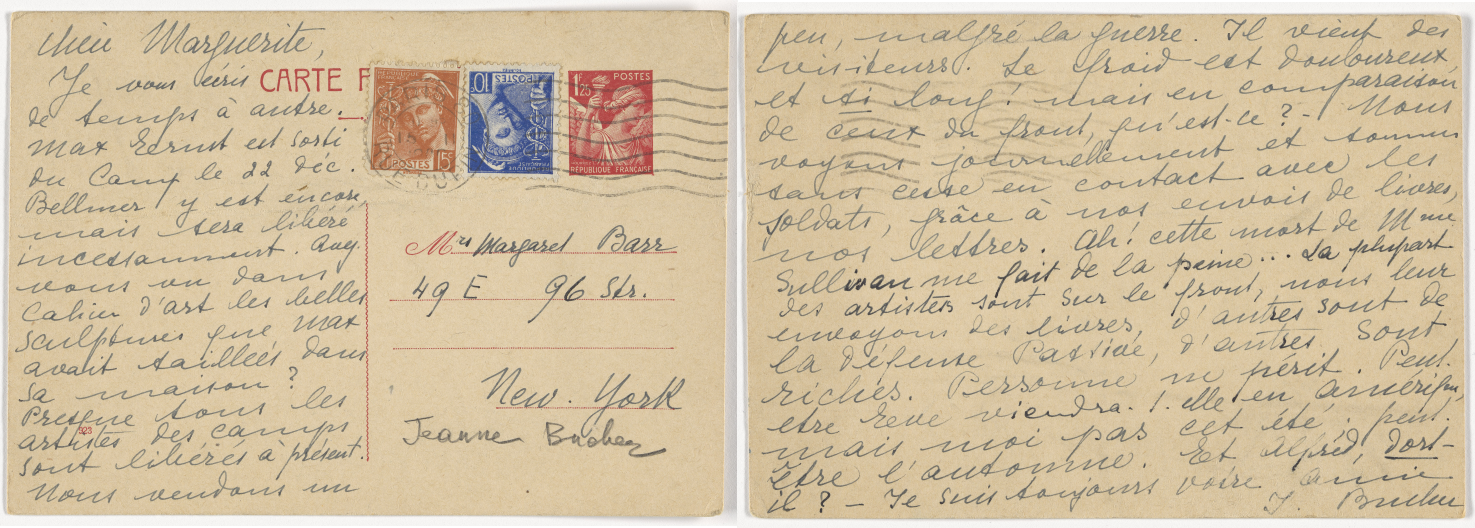 Chère Marguerite,
Je vous écris
de temps à autre.
Max Ernst est sorti
du Camp le 22 déc.
Bellmer y est encore,
mais sera libéré
incessamment. Avez
vous vu dans
Cahier d'art les belles
sculptures que Max
avait taillées dans
sa maison ?
Presque tous les
artistes des camps
sont libérés à présent.
Nous vendons un
CARTE P
RÉPUBLIQUE FRANÇAISE
POSTES 15c
10c POSTES
1F25 POSTES
RÉPUBLIQUE FRANÇAISE
Mrs Margaret Barr
49 E 96 Str.
New. York
Jeanne Bucher
923
peu, malgré la guerre. Il vient des
visiteurs. Le froid est douloureux
et si long! mais en comparaison
de ceux du front, qu'est-ce ? - Nous
voyons journellement et sommes
sans cesse en contact avec les
soldats, grâce à nos envois de livres,
nos lettres. Ah! cette mort de Mme
Sullivan me fait de la peine... La plupart
des artistes sont sur le front, nous leur
envoyons des livres, d'autres sont de
la Défense Passive, d'autres sont
riches. Personne ne périt. Peut-
etre Eve viendra-t-elle en amérique,
mais moi pas cet été, peut-
être l'automne. Et Alfred, dort-
il ? - Je suis toujours votre amie
J. Bucher